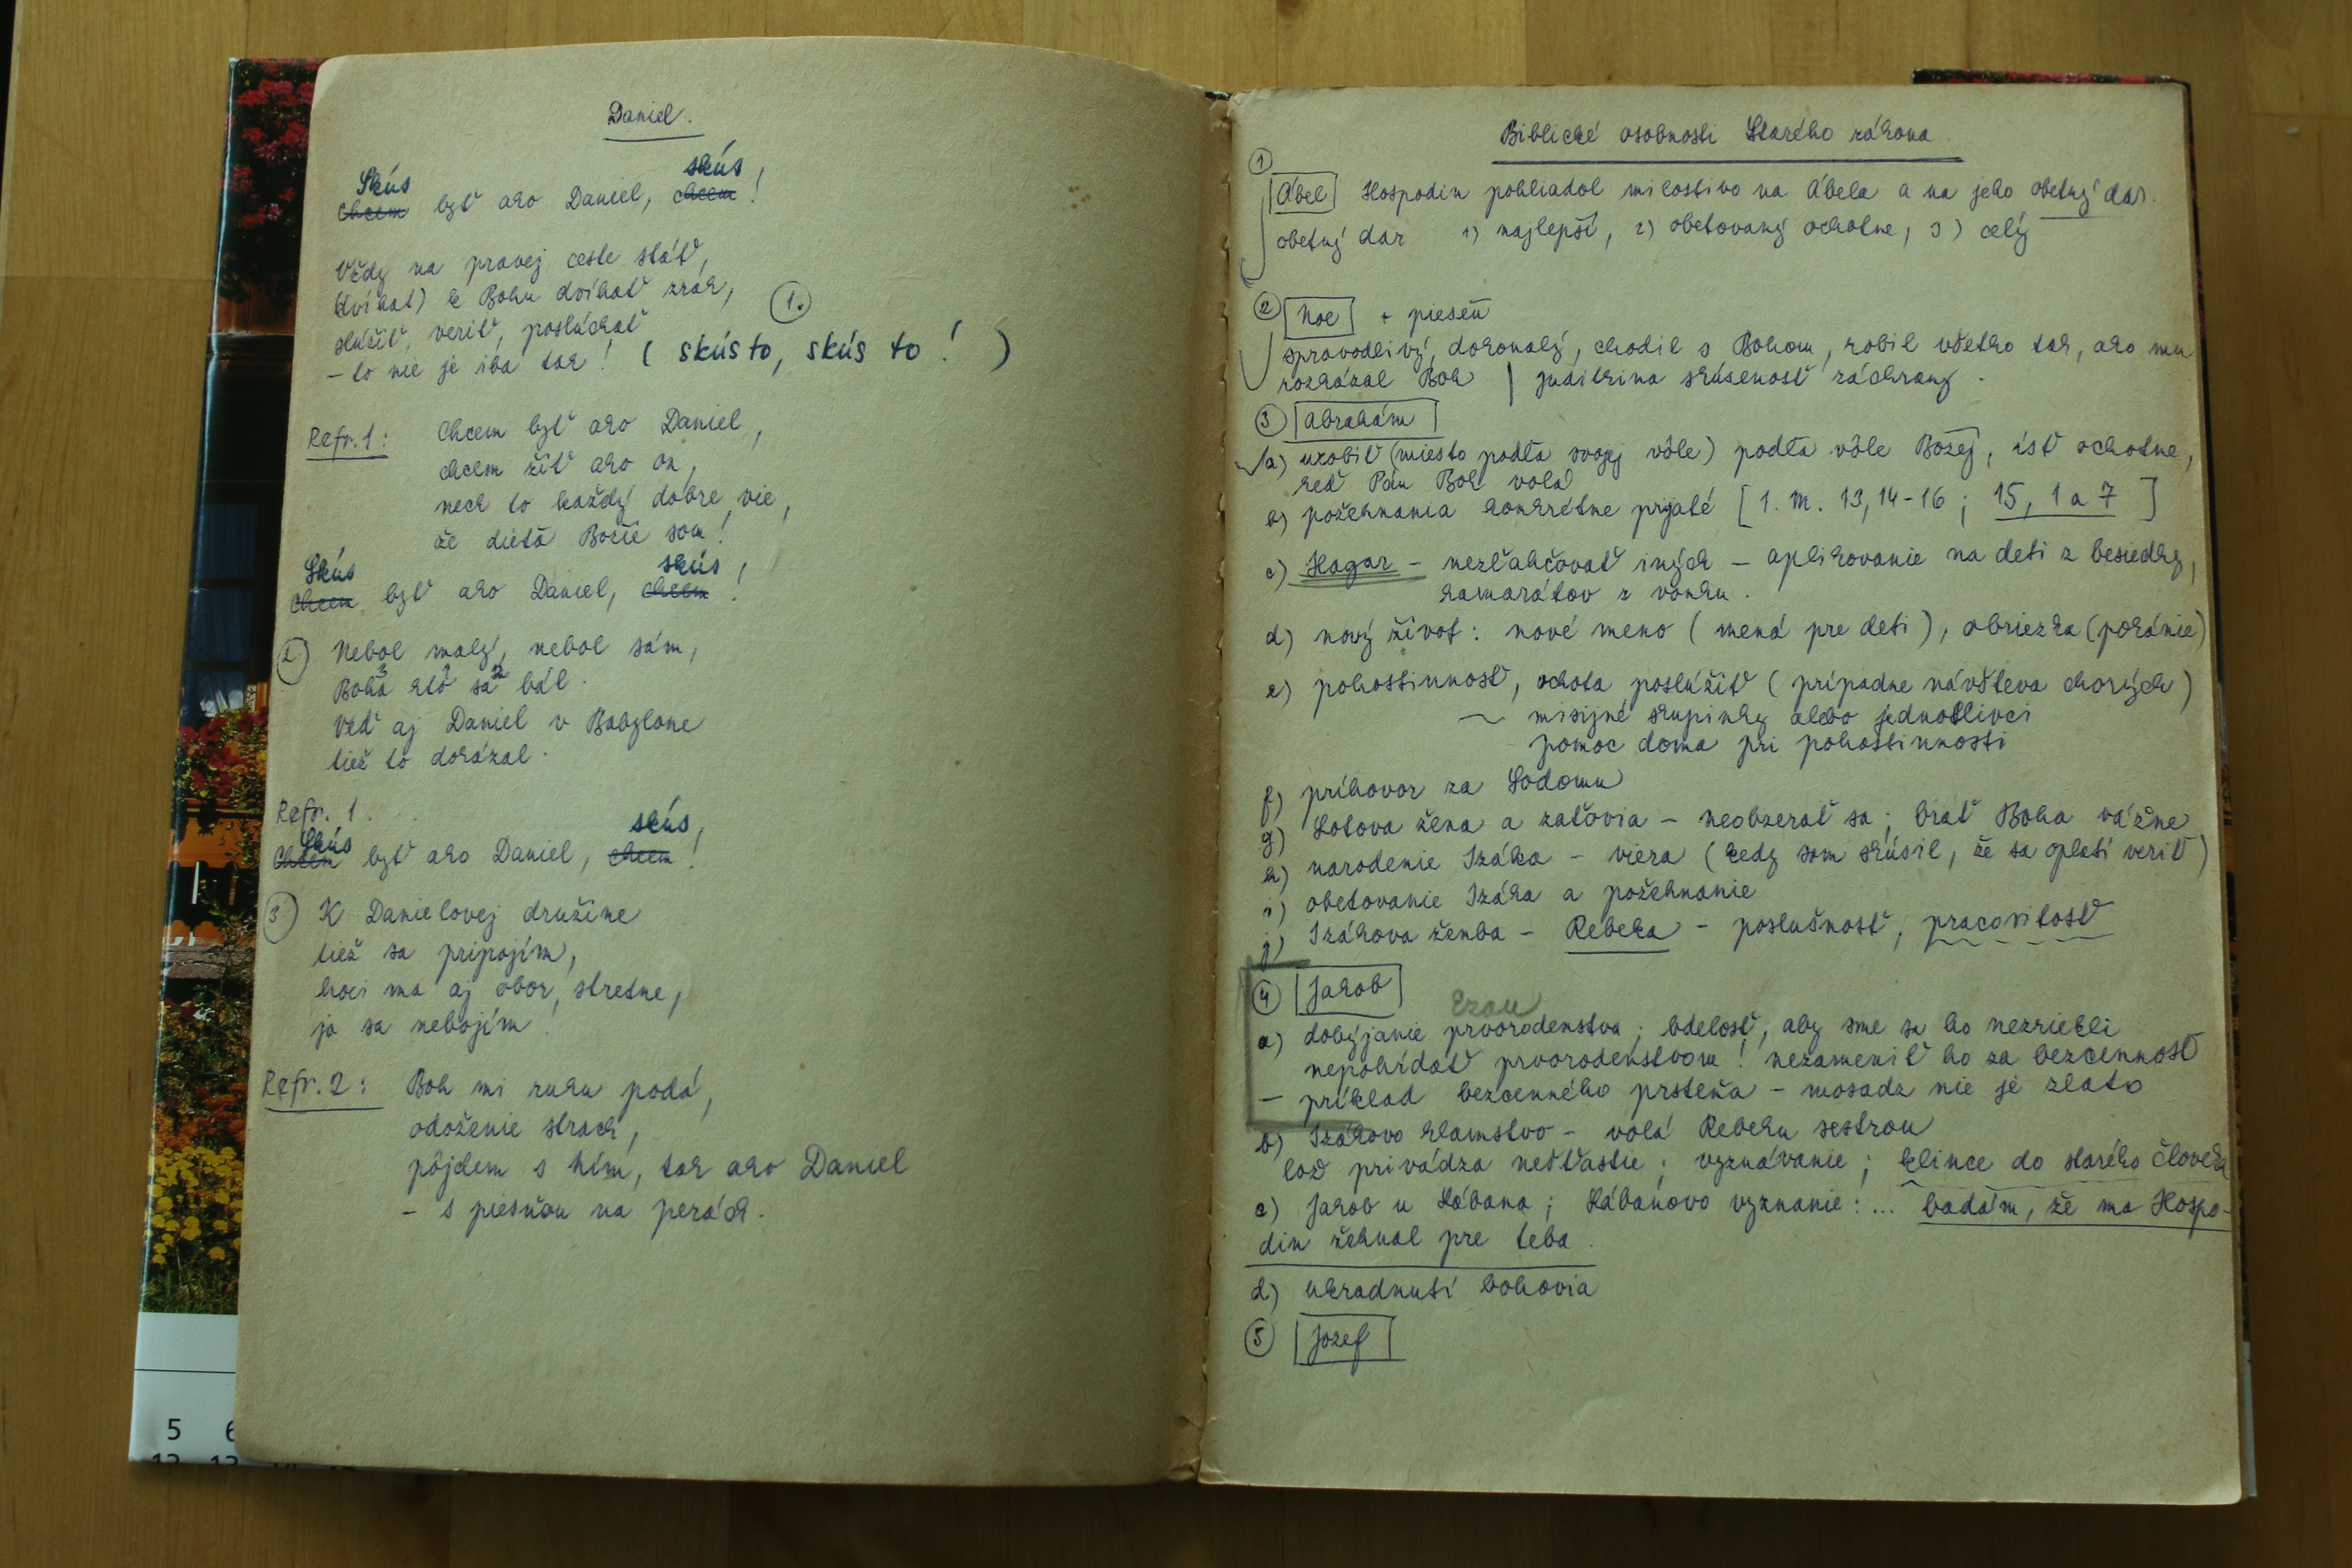 Daniel.
Skús skús
Chcem byť ako Daniel, chcem!
Vždy na pravej ceste stáť,
(dvíhať) k Bohu dvíhať zrak,
slúžiť, veriť, poslúchať
1.
– to nie je iba tak! (skús to, skús to!)
Refr. 1: Chcem byť ako Daniel,
chcem žiť ako on,
nech to každý dobre vie,
že dieťa Božie som!
Skús skús
Chcem byť ako Daniel, chcem!
2.) Nebol malý, nebol sám,
3 1 2
Boha kto sa bál.
Veď aj Daniel v Babylone
tiež to dokázal.
Refr. 1.
Skús skús
Chcem byť ako Daniel, chcem!
3.) K Danielovej družine
tiež sa pripojím,
hoci ma aj obor stretne,
ja sa nebojím!
Refr. 2: Boh mi ruku podá,
odoženie strach,
pôjdem s ním, tak ako Daniel
– s piesňou na perách.
Biblické osobnosti Starého zákona.
1
Ábel Hospodin pohliadol milostivo na Ábela a na jeho obetný dar.
obetný dar 1) najlepší, 2) obetovaný ochotne, 3) celý
2 Noe + pieseň
spravodlivý, dokonalý, chodil s Bohom, robil všetko tak, ako mu
rozkázal Boh | Juditkina skúsenosť záchrany.
3 Abrahám
a) urobiť (miesto podľa svojej vôle) podľa vôle Božej, ísť ochotne,
keď Pán Boh volá
b) požehnania konkrétne prijaté [1. M. 13, 14-16; 15, 1 a 7]
c) Hagar – nezľahčovať iných – aplikovanie na deti z besiedky,
kamarátov z vonku.
d) nový život: nové meno (mená pre deti), obriezka (pokánie)
e) pohostinnosť, ochota poslúžiť (prípadne návšteva chorých)
~ misijné skupinky alebo jednotlivci
pomoc doma pri pohostinnosti
f) príhovor za Sodomu
g) Lotova žena a zaťovia – neobzerať sa; brať Boha vážne
h) narodenie Izáka – viera (kedy som skúsil, že sa oplatí veriť)
i) obetovanie Izáka a požehnanie
j) Izákova ženba – Rebeka – poslušnosť, pracovitosť
4 Jakob
Ezau
a) dobýjanie prvorodenstva; bdelosť, aby sme sa ho nezriekli
nepohŕdať prvorodenstvom! nezameniť ho za bezcennosť
– príklad bezcenného prsteňa – mosadz nie je zlato
b) Izákovo klamstvo – volá Rebeku sestrou
lož privádza nešťastie; vyznávanie; klince do starého človeka
c) Jakob u Lábana; Lábanovo vyznanie: ... badám, že ma Hospo-
din žehnal pre teba.
d) ukradnutí bohovia
5 Jozef
5 6
12 13